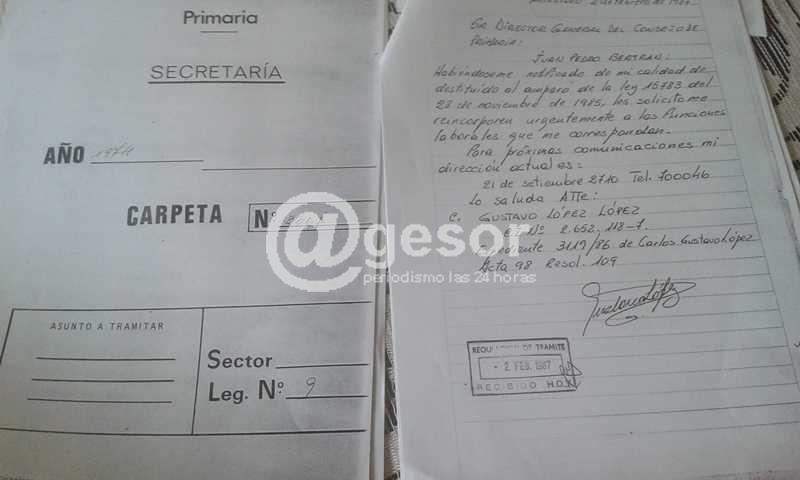 Primaria
SECRETARÍA
AÑO 1974
CARPETA Nº
ASUNTO A TRAMITAR
Sector
Leg. Nº 9
@gesor
periodismo las 24 horas
SR DIRECTOR GENERAL DEL CONSEJO DE
PRIMARIA:
JUAN PEDRO BERTRAN:
Habiéndoseme notificado de mi calidad de
destituído al amparo de la ley 15.783 del
28 de noviembre de 1985, les solicito me
reincorporen urgentemente a las funciones
laborales que me correspondan.
Para próximas comunicaciones mi
dirección actual es:
21 de setiembre 2710 Tel. 700046
Lo saluda ATTe:
C. GUSTAVO LÓPEZ LÓPEZ
Nº 2.652.118-7.
Expediente 3119/86 de Carlos Gustavo López
Acta 98 Resol. 109
DE TRAMITE
- 2 FEB. 1987
RECIBIDO